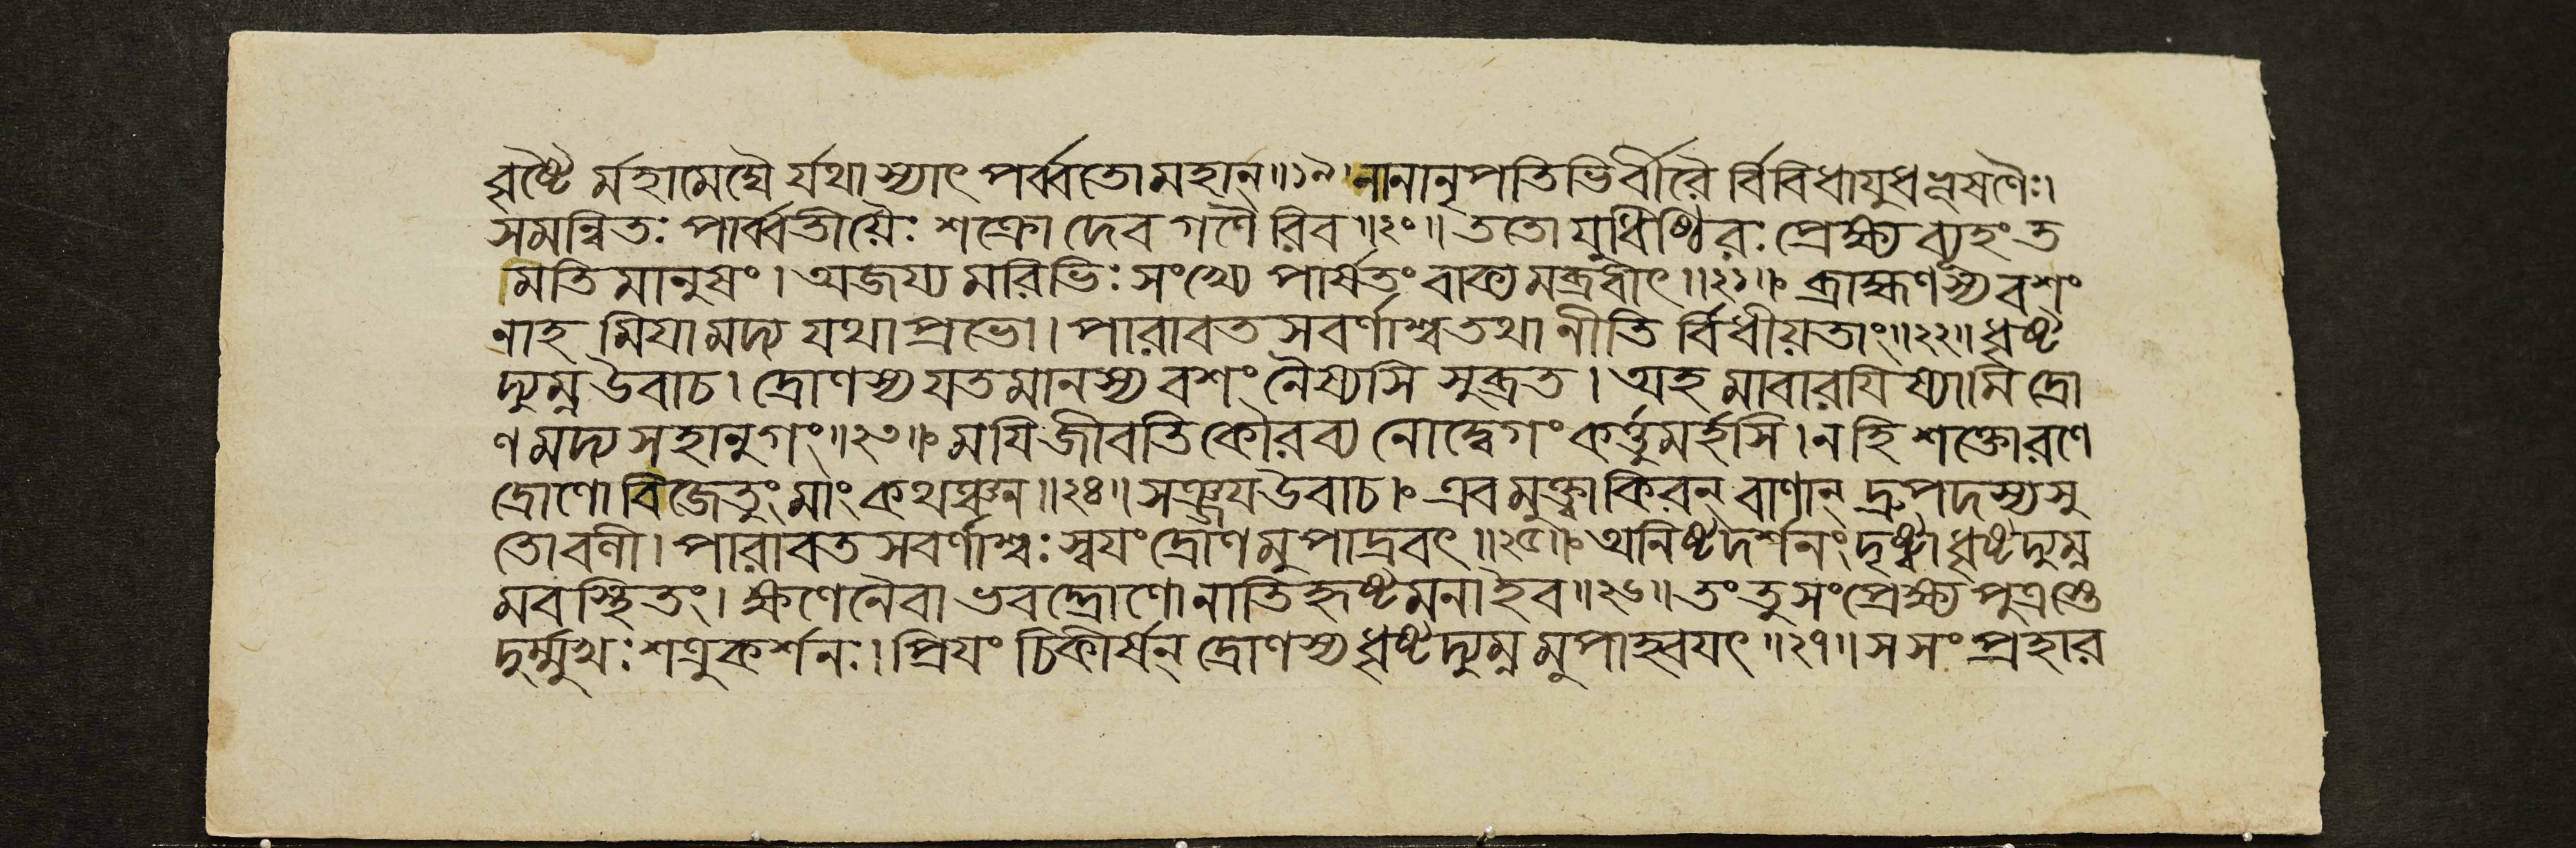 বৃষ্টৈর্মহামেঘৈর্যথাস্যাৎ পর্ব্বতোমহান্॥১৯॥নানানৃপতিভির্বীরৈর্বিবিধাযুধভূষণৈঃ।
সমন্বিতঃ পার্ব্বতীয়ৈঃ শক্রোদেবগণৈরিব॥২০॥ততোযুধিষ্ঠিরঃ প্রেক্ষ্যব্যূহংত
মতিমানুষং। অজয্যমরিভিঃ সংখ্যে পার্ষতংবাক্যমব্রবীৎ॥২১॥ ব্রাহ্মণস্যবশং
নাহমিযামদ্য যথাপ্রভো। পারাবতসবর্ণাশ্বতথানীতির্বিধীয়তাং॥২২॥ধৃষ্ট
দ্যুম্নউবাচ। দ্রোণস্যযতমানস্যবশংনৈষ্যসিসুব্রত। অহমাবারযিষ্যামিদ্রো
ণমদ্যসহানুগং॥২৩॥ মযিজীবতিকৌরব্য নোদ্বেগংকর্ত্তুমর্হসি।নহিশক্তোরণে
দ্রোণোবিজেতুংমাংকথঞ্চন॥২৪॥সঞ্জযউবাচ। এবমুক্ত্বাকিরন্ বাণান্ দ্রুপদস্যসু
তোবলী। পারাবতসবর্ণাশ্বঃস্বযংদ্রোণমুপাদ্রবৎ॥২৫॥ অনিষ্টদর্শনংদৃষ্ট্বাধৃষ্টদ্যুম্ন
মবস্থিতং। ক্ষণেনৈবাভবদ্দ্রোণোনাতিহৃষ্টমনাইব॥২৬॥তংতুসংপ্রেক্ষ্যপুত্রস্তে
দুর্ম্মুখঃশত্রুকর্শনঃ।প্রিযংচিকীর্ষন্ দ্রোণস্যধৃষ্টদ্যুম্নমুপাহ্বযৎ॥২৭॥সসংপ্রহার